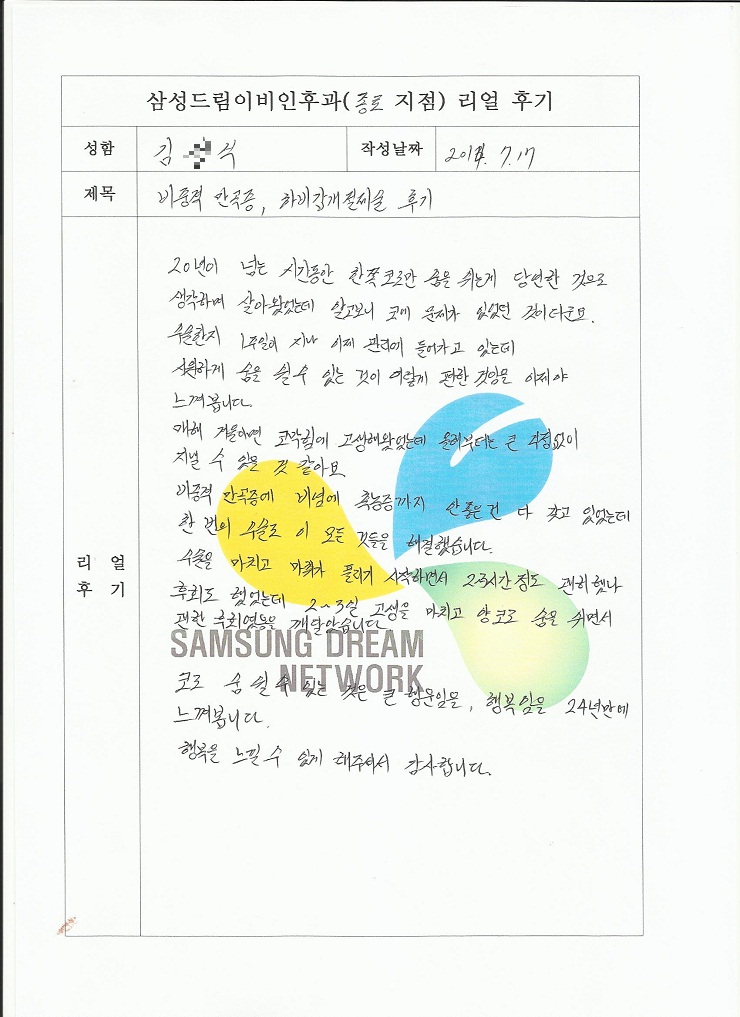 삼성드림이비인후과(종로 지점) 리얼 후기
성함 김 석 작성날짜 2014. 7. 17
제목 비중격 만곡증, 하비갑개절제술 후기
20년이 넘는 시간동안 한쪽코로만 숨을 쉬는게 당연한 것으로
생각하며 살아왔었는데 알고보니 코에 문제가 있었던 것이더군요.
수술한지 1주일이 지나 이제 관리에 들어가고 있는데
시원하게 숨을 쉴 수 있는 것이 이렇게 편한 것임을 이제야
느껴봅니다.
매해 겨울이면 코막힘에 고생해왔었는데 올해부터는 큰 걱정없이
지낼 수 있을 것 같아요
비중격 만곡증에 비염에 축농증까지 안좋은건 다 갖고 있었는데
한 번의 수술로 이 모든 것들을 해결했습니다.
수술을 마치고 마취가 풀리기 시작하면서 2~3시간 정도 괜히했나
후회도 했었는데 2~3일 고생을 마치고 양코로 숨을 쉬면서
괜한 후회였음을 깨달았습니다
리 얼
후 기
SAMSUNG DREAM
NETWORK
코로 숨 쉴 수 있는 것은 큰 행운임을, 행복임을 24년만에
느껴봅니다.
행복을 느낄 수 있게 해주셔서 감사합니다.